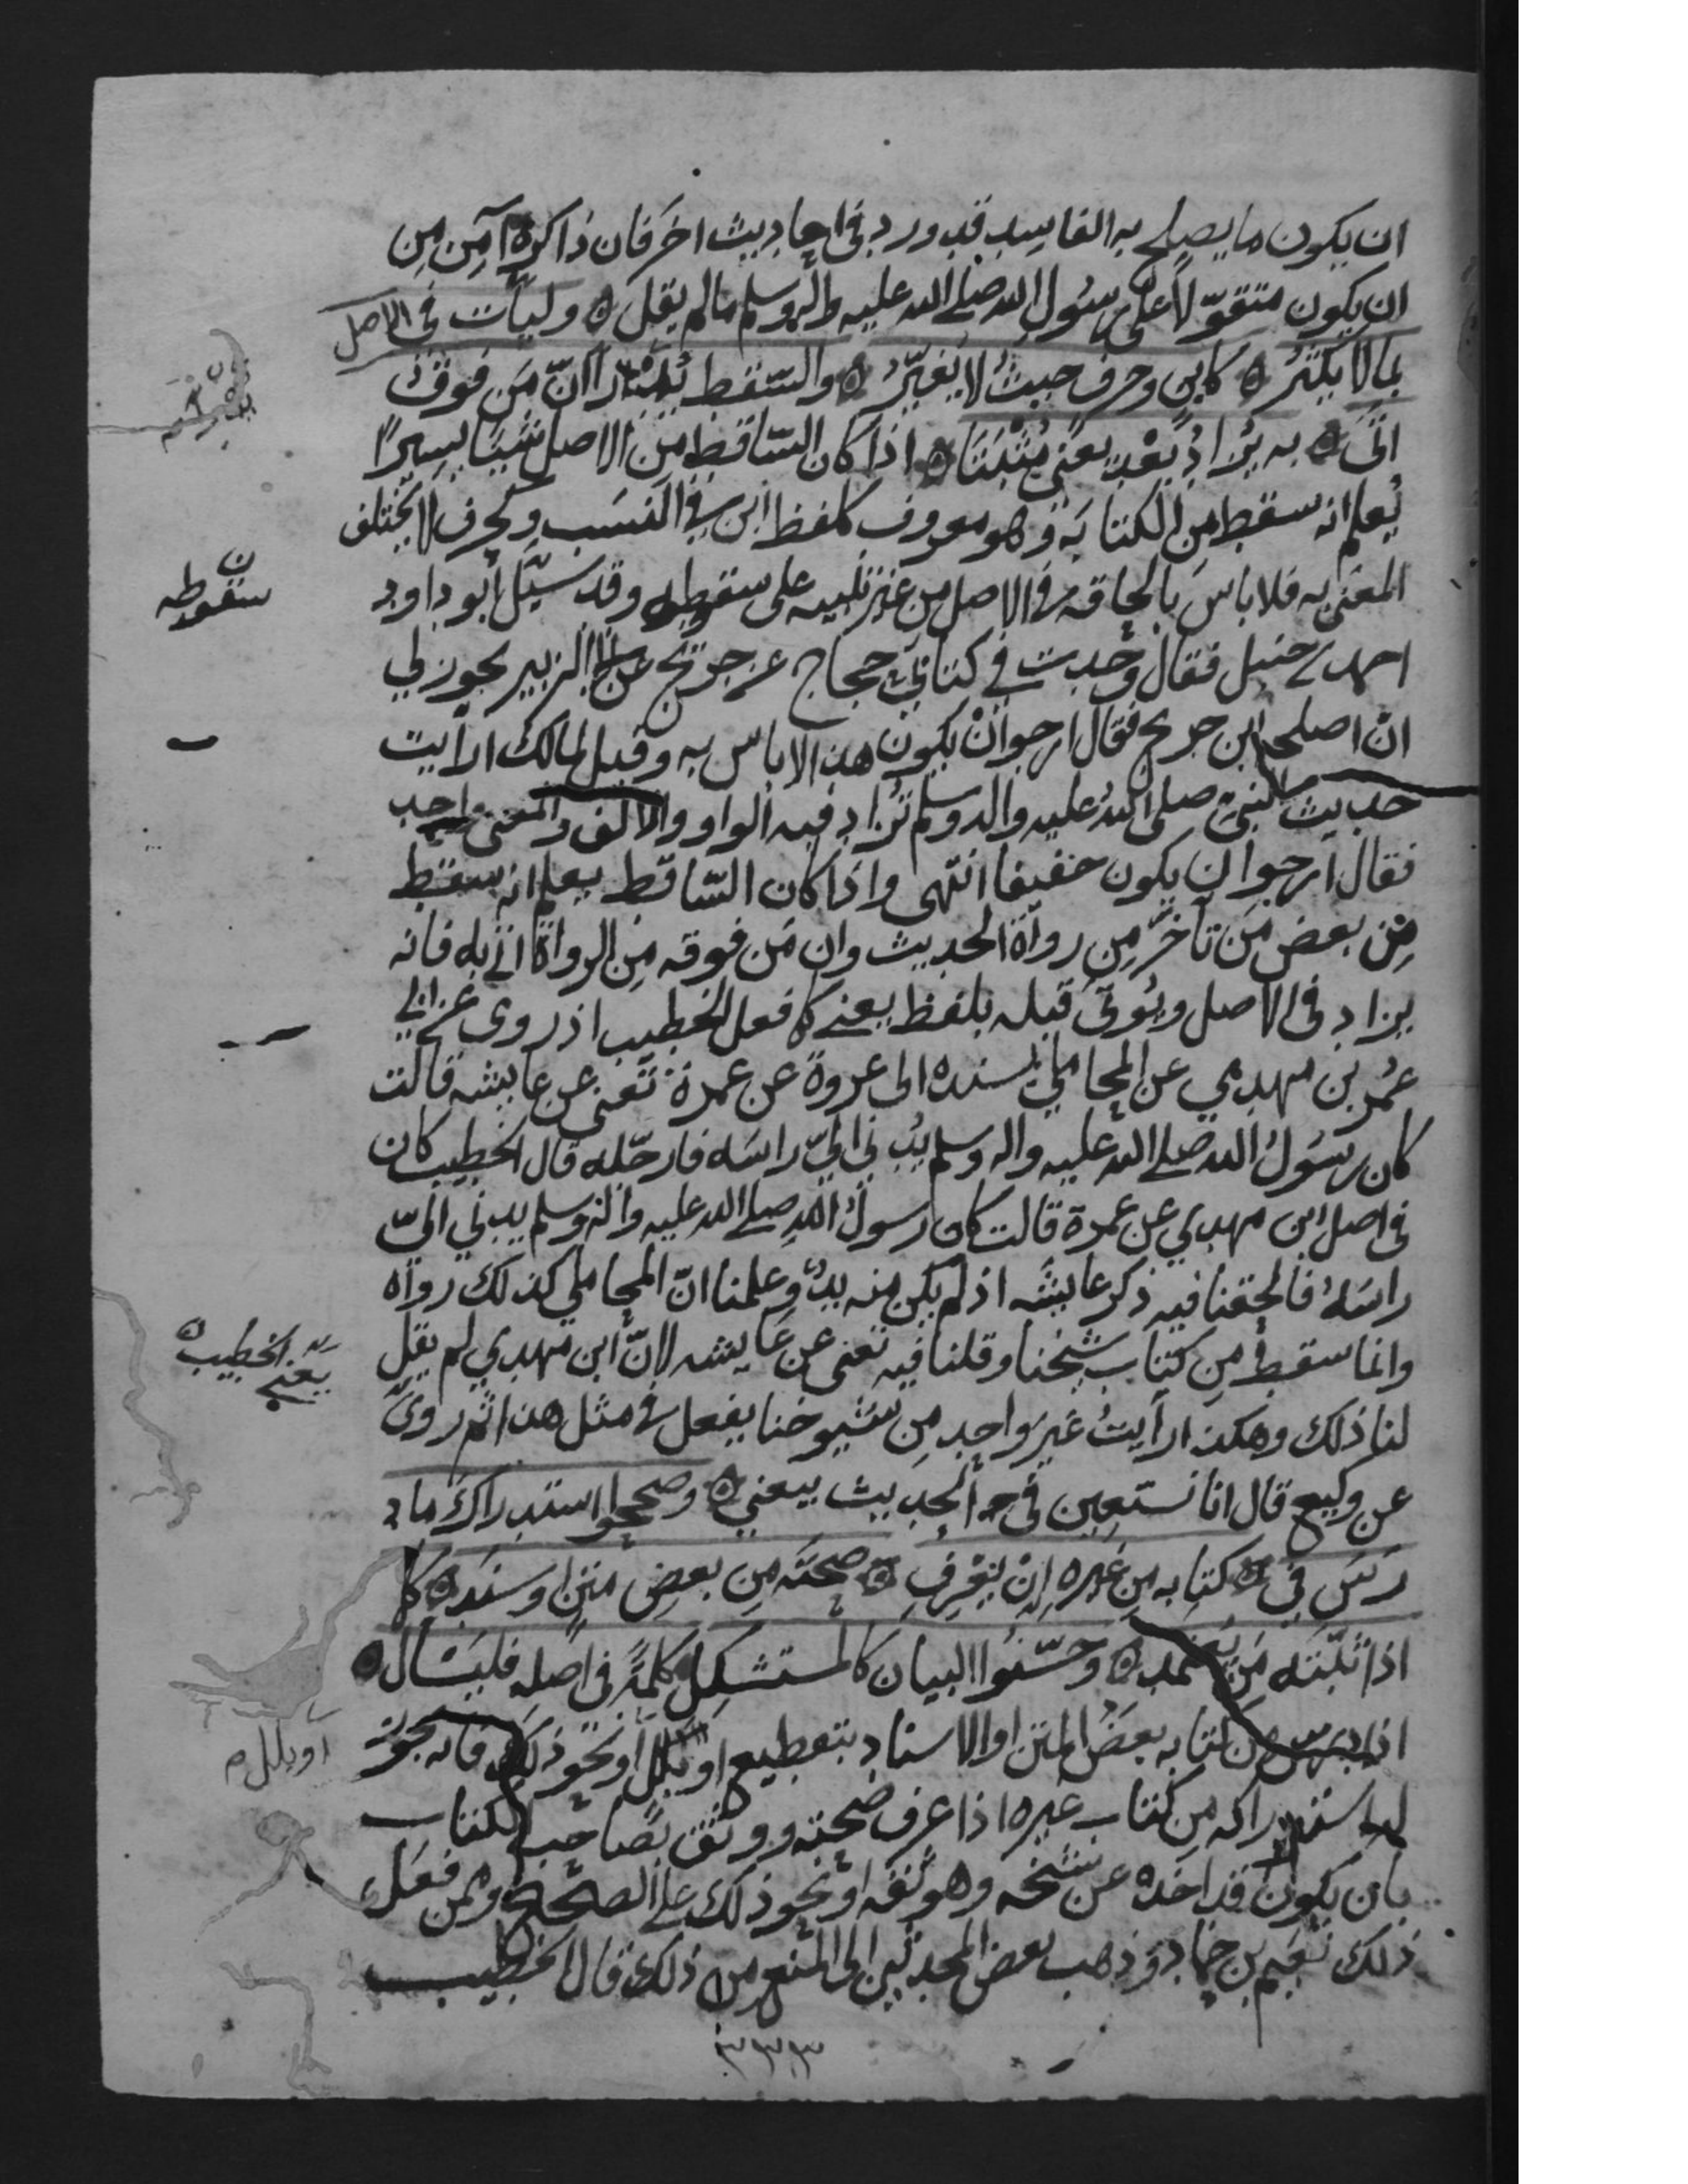 ان يكون ما يصلح به الفاسد قد ورد في احاديث اخر فان ذاكره آمن من
ان يكون متقوّلا على رسول الله صلى الله عليه واله وسلم مالم يقل ه وليأت في الاصل
بما لا يكثر ه كابن وحرف حيث لا يغيّر ه والسّقط يُدْرَا انّ مَن فوقُ
اتَى ه به يُزادُ بَعْد يعني مثبتا ه اذا كان السّاقط من الاصل شيئا يسيرًا
يُعلم انه سقط من الكتابة وهو معروف كلفظ ابن في النسَب وكحرف لا يختلف
المعنى به فلا باس بالحاقه في الاصل من غير تنبيه على سقوطه وقد سئل ابو داود
احمد بن حنبل فقال وجدت في كتابي حجاج عن جريج عن ابي الزبير يجوز لي
انْ اصلحه ابن جريج فقال ارجو انْ يكون هذا لا باس به وقيل لمالك ارأيت
حديث النبي صلى الله عليه واله وسلم تزاد فيه الواو والالف والمعنى واحد
فقال ارجو ان يكون خفيفا انتهى واذا كان السّاقط يعلم انه سقط
مِن بعض مَن تأخّر مِن رواة الحديث وان مَن فوقه مِن الرواة اتى به فانه
يزاد في الاصل ويؤتى قبله بلفظ يعني كما فعل الخطيب اذ روى عن ابي
عُمر بن مهدي عن المحاملي بسنده الى عروة عن عمرة تعني عن عايشه قالت
كان رسول الله صلى الله عليه واله وسلم يُدني اليّ راسَه فارجّله قال الخطيب كان
في اصل ابن مهدي عن عمرة قالت كان رسول الله صلى الله عليه واله وسلم يدني اليّ
راسَهُ فالحقنا فيه ذكر عايشه اذ لم يكن منه بدٌ وعلمنا انّ المحاملي كذلك رواه
وانما سقط مِن كتاب شيخنا وقلنا فيه تعني عن عايشه لانّ ابن مهدي لم يقل
لنا ذلك وهكذا رأيتُ غير واحد مِن شيوخنا يفعل في مثل هذا ثم روى
عن وكيع قال انا نستعين في الحديث بيعني ه وصححوا استدراك ما د
رَسَ في ه كتابه مِن غيره اِنْ يَعْرِفِ ه صحتَه مِن بعضِ متنٍ او سندِ ه كما
اذا ثبّته مَن يعتمد ه وحسّنوا البيان كالمستشكِل كلمةً في اصله فليسأل ه
اذا درس من كتابه بعضُ المتن او الاسناد بتقطيع او بلل او نحو ذلك فانه يجوز
له استدراكه من كتاب غيره اذا عرف صحته ووثق بصاحب الكتاب
بان يكون قد اخذه عن شيخه وهو ثقه او نحو ذلك على الصحيح وممن فعل
ذلك نعيم بن حماد وذهب بعض المحدثين الى المنع من ذلك قال الخطيب
سقوطه
يعني الخطيب ه
او بلل ه